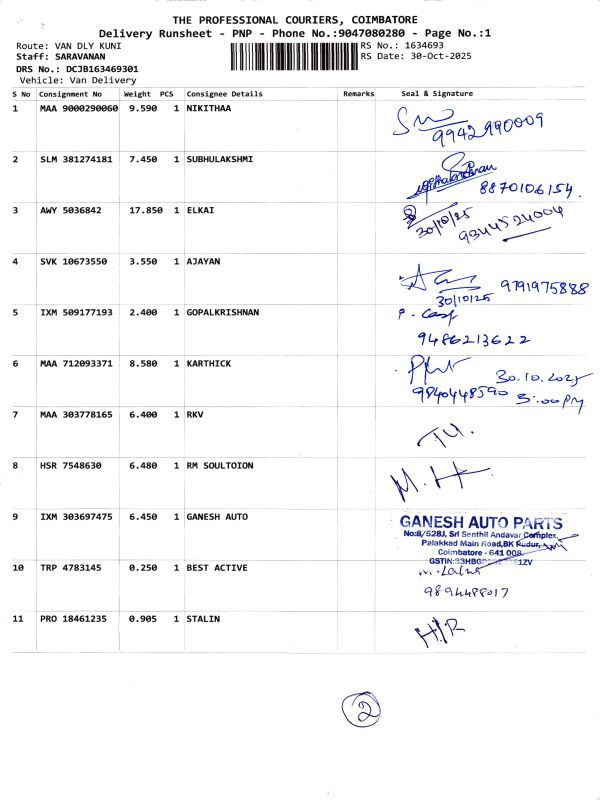 THE PROFESSIONAL COURIERS, COIMBATORE
Delivery Runsheet - PNP - Phone No.:9047080280 - Page No.:1
Route: VAN DLY KUNI
RS No.: 1634693
Staff: SARAVANAN
RS Date: 30-Oct-2025
DRS No.: DCJB163469301
Vehicle: Van Delivery
S No Consignment No Weight PCS Consignee Details Remarks Seal & Signature
1 MAA 9000290060 9.590 1 NIKITHAA
9942990009
2 SLM 381274181 7.450 1 SUBHULAKSHMI
8870106154.
3 AWY 5036842 17.850 1 ELKAI
30/10/25 9344524004
4 SVK 10673550 3.550 1 AJAYAN
30/10/25 9791975888
5 IXM 509177193 2.400 1 GOPALKRISHNAN
9486213622
6 MAA 712093371 8.580 1 KARTHICK
30.10.2025
9840448590 3:00PM
7 MAA 303778165 6.400 1 RKV
8 HSR 7548630 6.480 1 RM SOULTOION
M.H
9 IXM 303697475 6.450 1 GANESH AUTO
GANESH AUTO PARTS
No:8/528J, Sri Senthil Andavar Complex,
Palakkad Main Road,BK Pudur,
Coimbatore - 641 008.
10 TRP 4783145 0.250 1 BEST ACTIVE
9894488017
11 PRO 18461235 0.905 1 STALIN
H/R
2